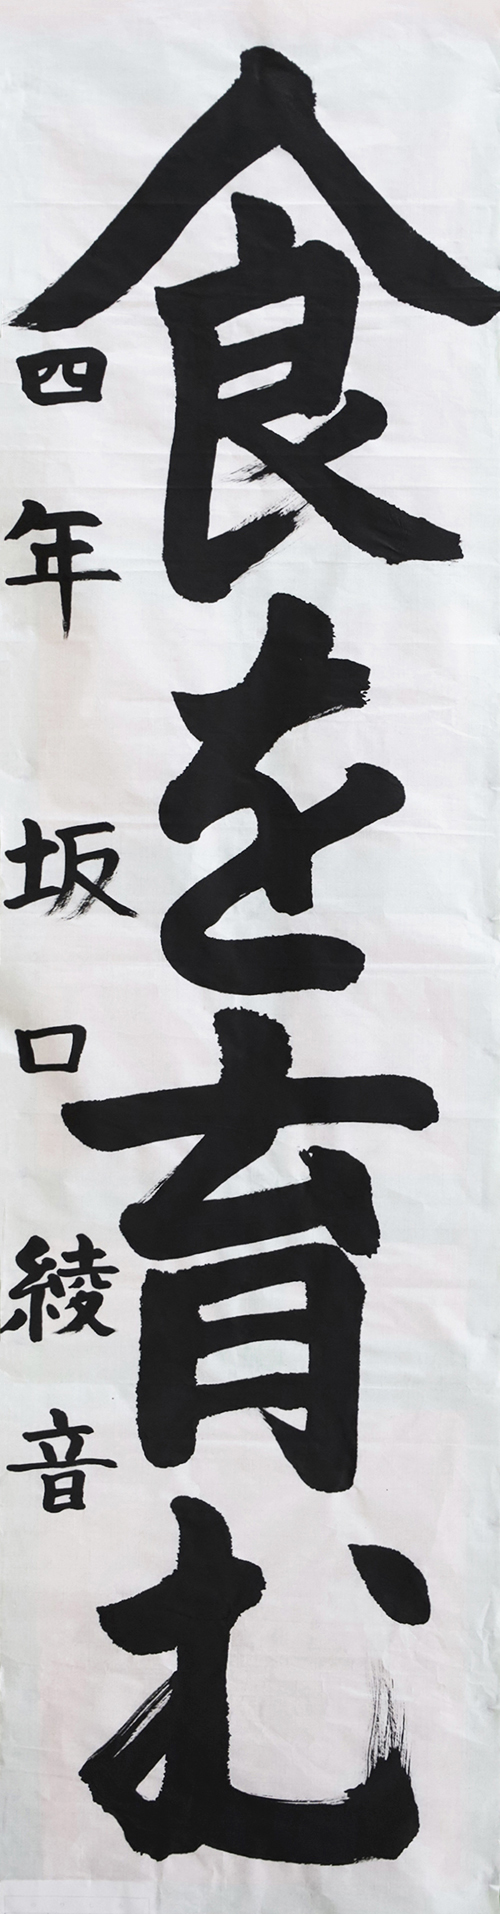 食を育む
四年 坂口綾音